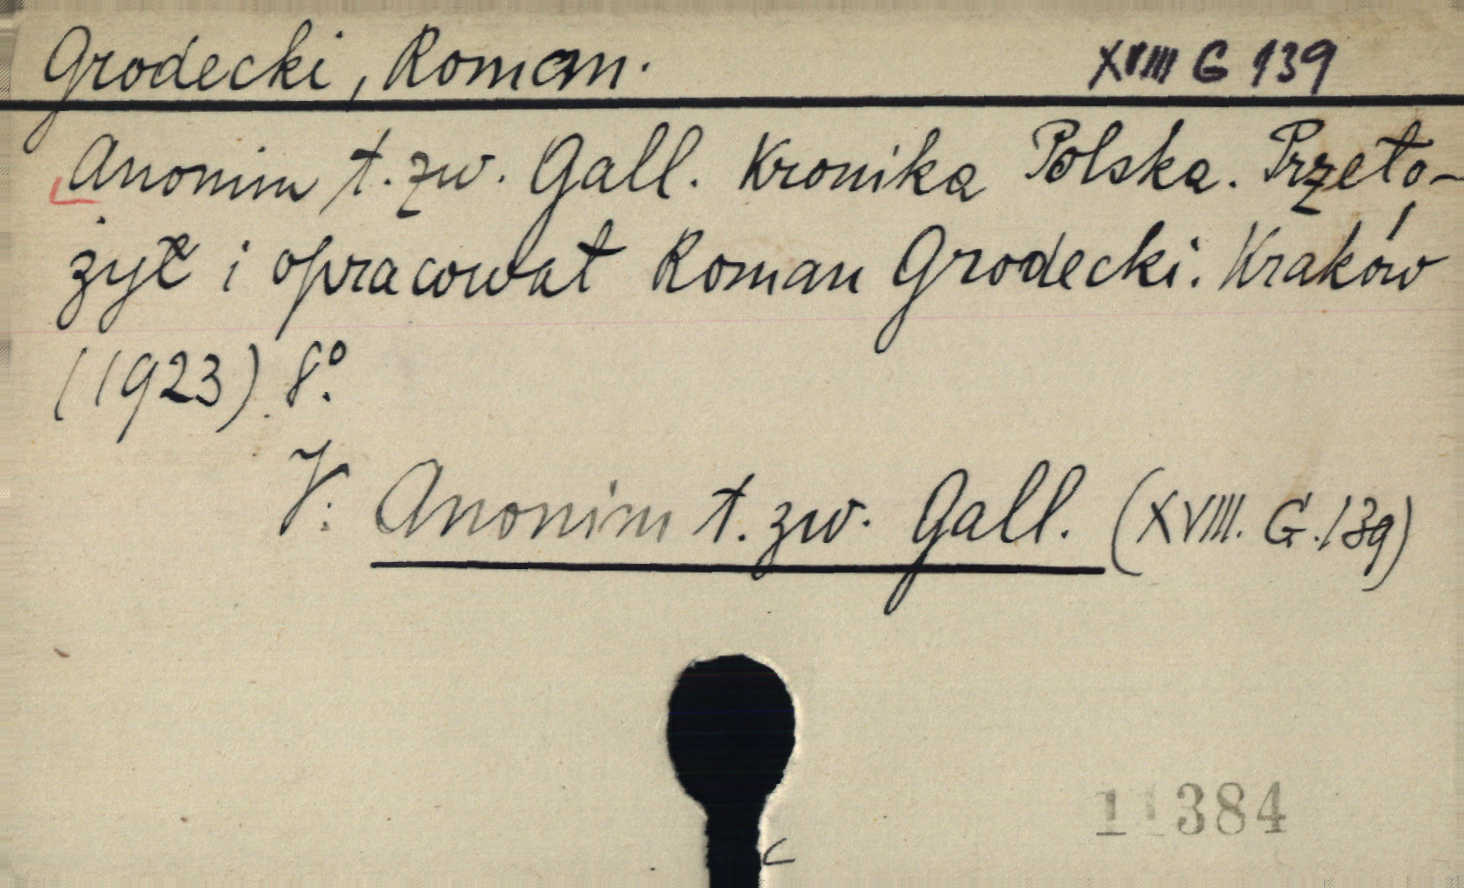 Grodecki, Roman. XVIII G 139
Anonim t. zw. Gall. Kronika Polska. Przeło-
żył i opracował Roman Grodecki. Kraków
(1923). 8°.
V: Anonim t. zw. Gall. (XVIII. G. 139)
11384